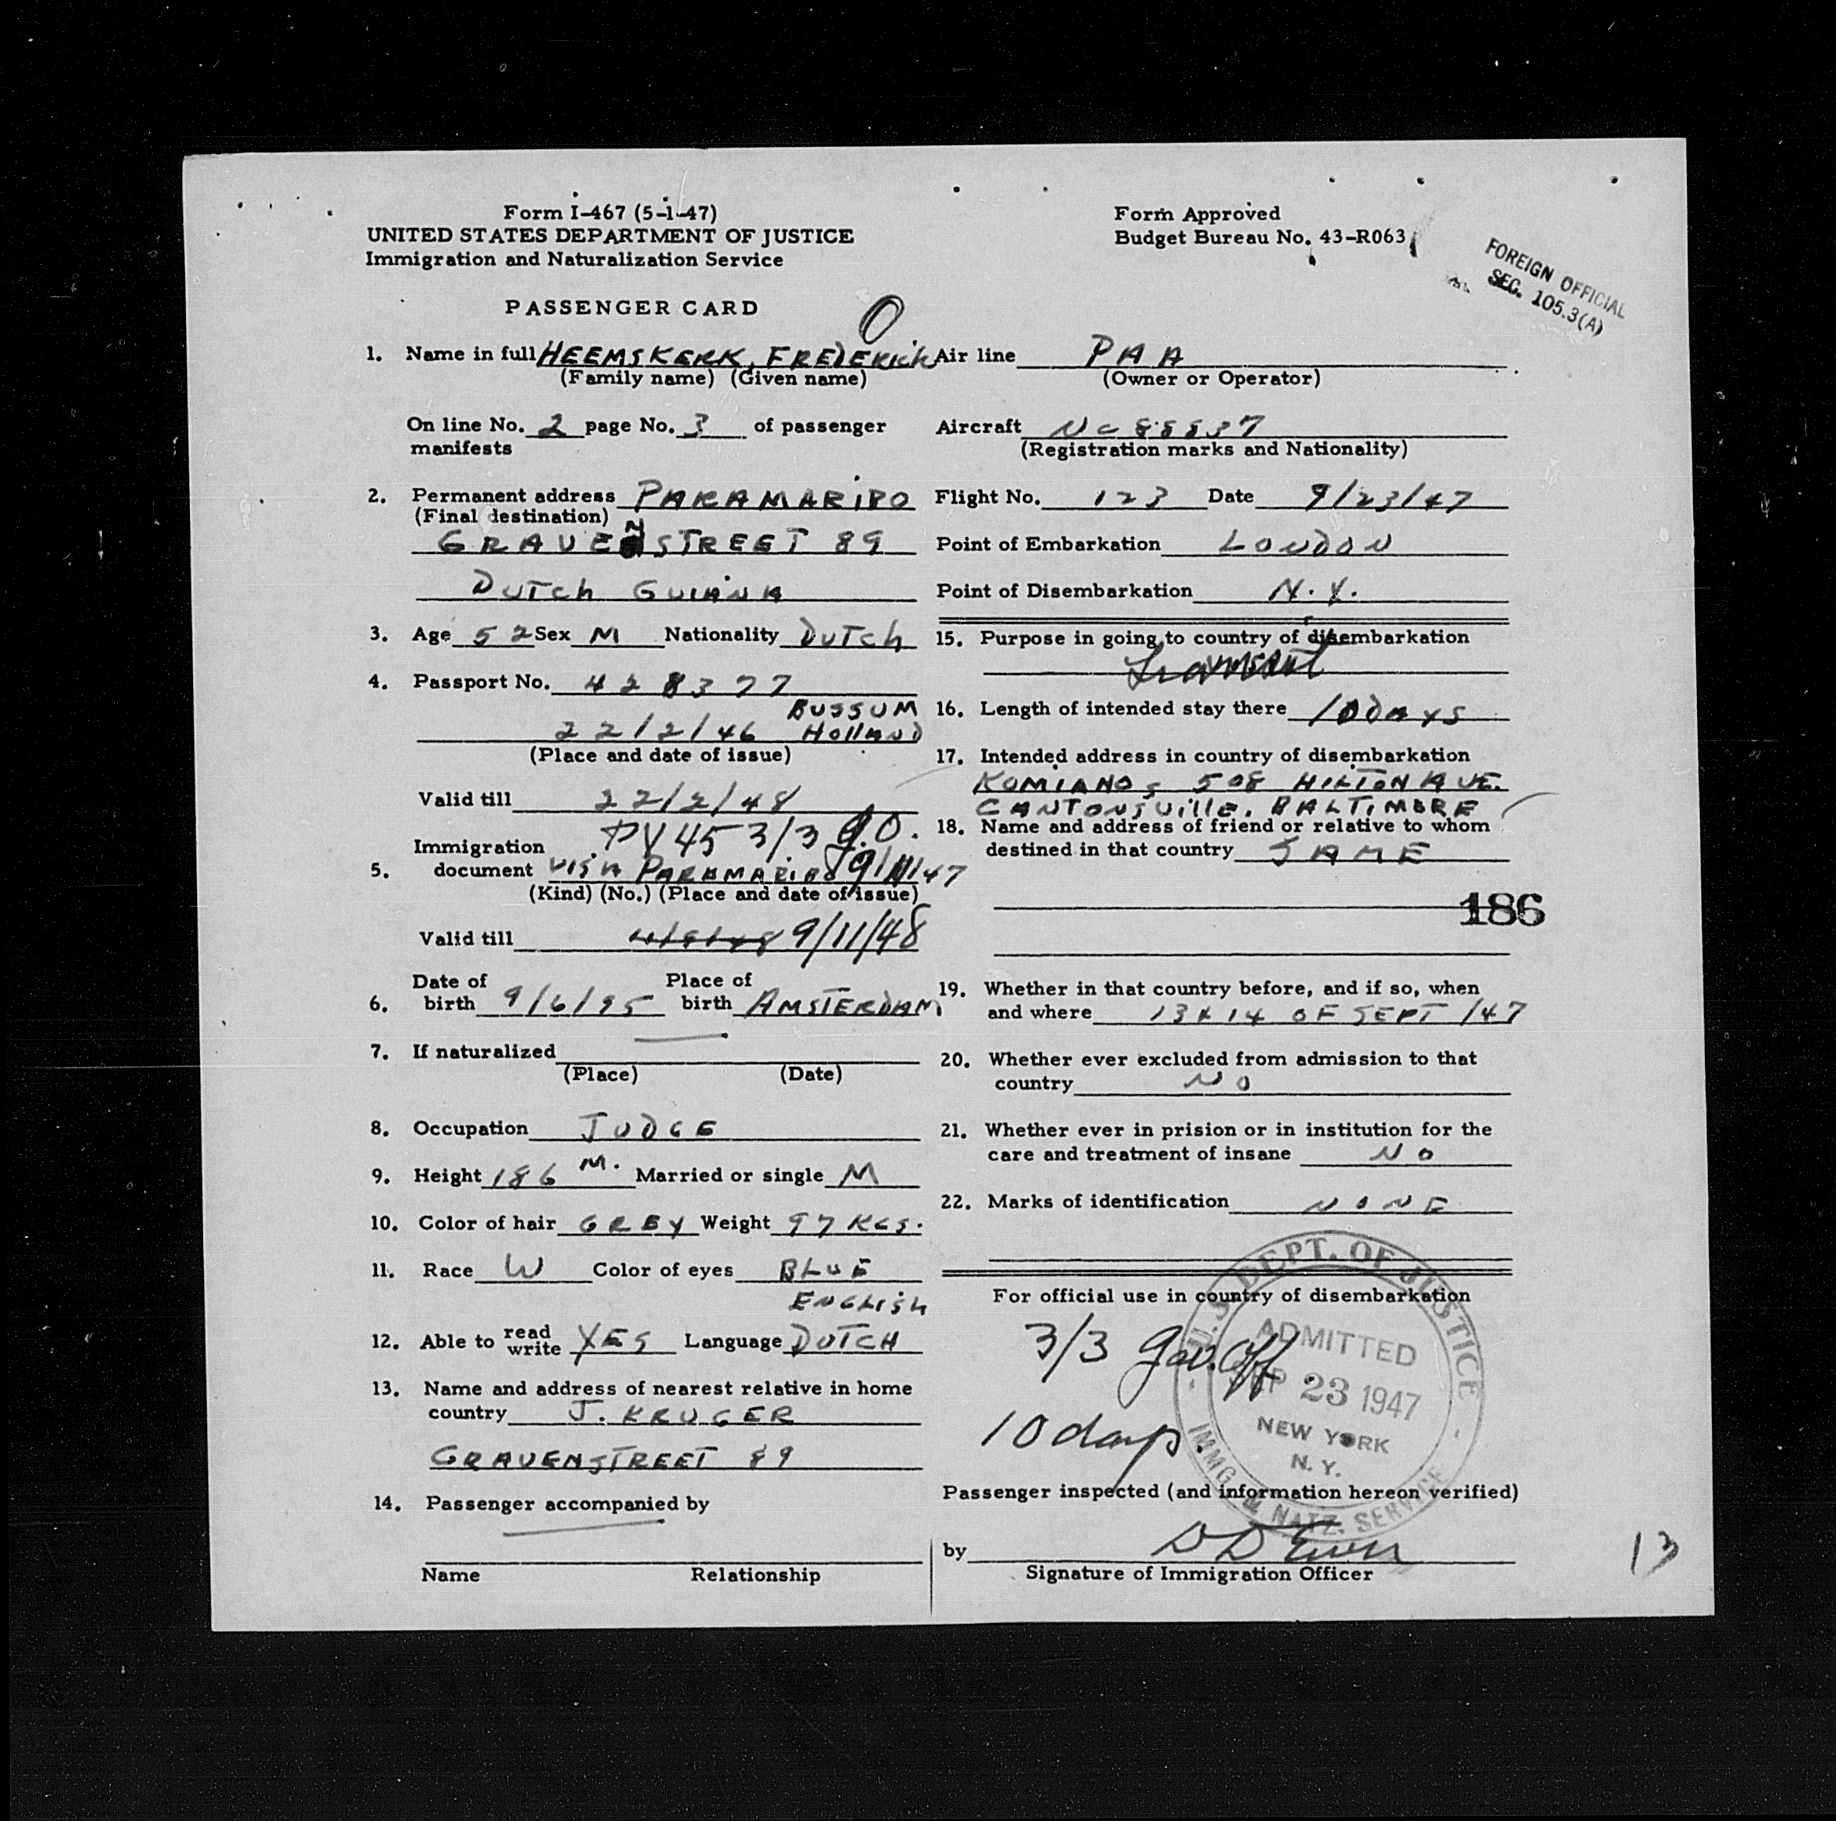 Form I-467 (5-1-47)
UNITED STATES DEPARTMENT OF JUSTICE
Immigration and Naturalization Service
PASSENGER CARD
Form Approved
Budget Bureau No. 43-R063
FOREIGN OFFICIAL
SEC. 105.3(A)
O
1. Name in full HEEMSKERK, FREDERICK
(Family name) (Given name)
On line No. 2 page No. 3 of passenger
manifests
2. Permanent address PARAMARIBO
(Final destination)
GRAVENSTREET 89
DUTCH GUIANA
3. Age 52 Sex M Nationality DUTCH
4. Passport No. 428377
BUSSUM
22/2/46 HOLLAND
(Place and date of issue)
Valid till 22/2/48
PV 45 3/3 g.O.
Immigration
5. document VISA PARAMARIBO 9/11/47
(Kind) (No.) (Place and date of issue)
Valid till 9/11/48
Date of Place of
6. birth 9/6/95 birth AMSTERDAM
7. If naturalized
(Place) (Date)
8. Occupation JUDGE
9. Height 186 M. Married or single M
10. Color of hair GREY Weight 97 KGS.
11. Race W Color of eyes BLUE
ENGLISH
12. Able to read write YES Language DUTCH
13. Name and address of nearest relative in home
country J. KRUGER
GRAVENSTREET 89
14. Passenger accompanied by
Name Relationship
Air line PAA
(Owner or Operator)
Aircraft NC 88837
(Registration marks and Nationality)
Flight No. 123 Date 9/23/47
Point of Embarkation LONDON
Point of Disembarkation N.Y.
15. Purpose in going to country of disembarkation
Transit
16. Length of intended stay there 10 DAYS
17. Intended address in country of disembarkation
KOMIANOS 508 HILTON AVE.
CANTONSVILLE. BALTIMORE
18. Name and address of friend or relative to whom
destined in that country SAME
186
19. Whether in that country before, and if so, when
and where 13 & 14 OF SEPT /47
20. Whether ever excluded from admission to that
country NO
21. Whether ever in prision or in institution for the
care and treatment of insane NO
22. Marks of identification NONE
For official use in country of disembarkation
3/3 Gov. Off.
10 days.
U.S. DEPT. OF JUSTICE
ADMITTED
SEP 23 1947
NEW YORK
N.Y.
IMMG. & NATZ. SERVICE
Passenger inspected (and information hereon verified)
by
Signature of Immigration Officer
13